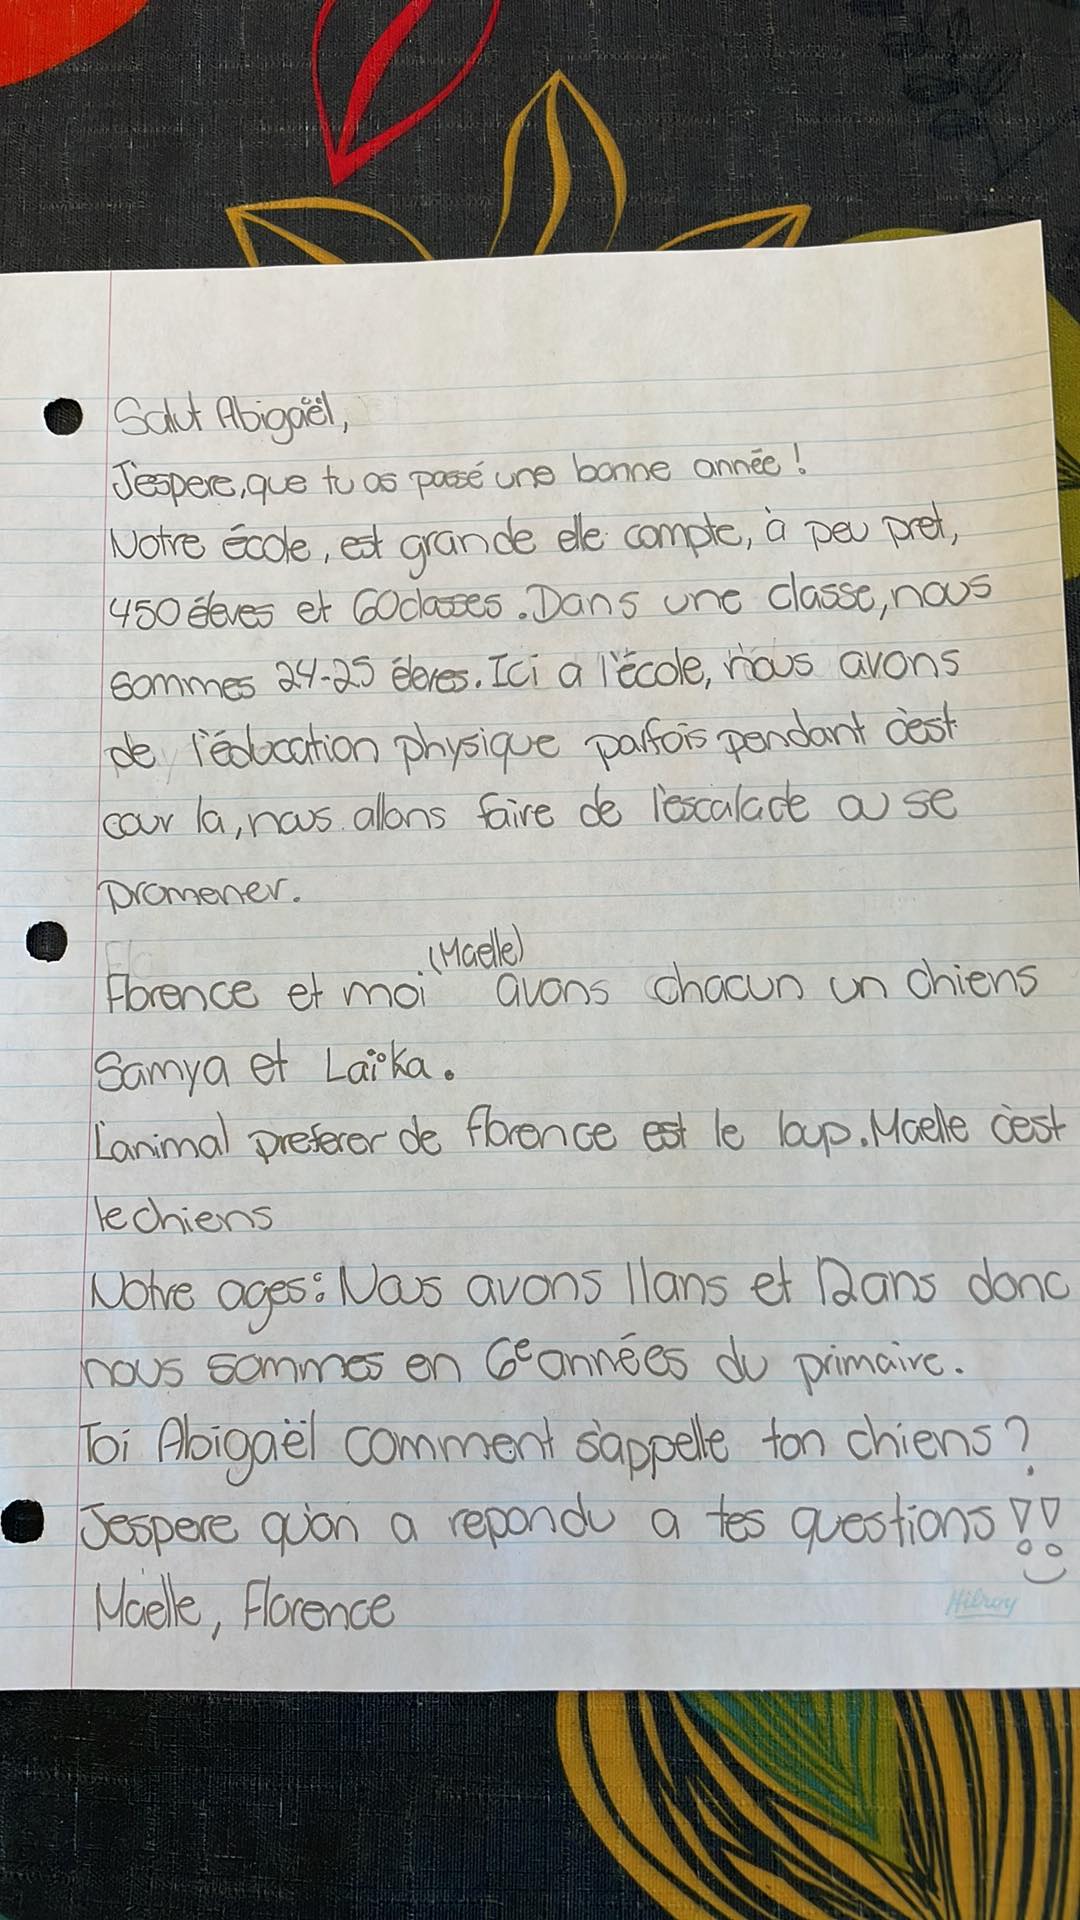 Salut Abigaël,
J'espere, que tu as passé une bonne année !
Notre école, est grande elle compte, à peu pret,
450 éleves et 60 classes. Dans une classe, nous
sommes 24-25 éleves. Ici a l'école, nous avons
de l'éducation physique parfois pendant c'est
cour la, nous allons faire de l'escalade ou se
promener.
(Maelle)
Florence et moi avons chacun un chiens
Samya et Laïka.
L'animal preferer de florence est le loup. Maelle c'est
le chiens
Notre ages: Nous avons 11ans et 12ans donc
nous sommes en 6e années du primaire.
Toi Abigaël comment s'appelle ton chiens ?
J'espere qu'on a repondu a tes questions !!
Maëlle, Florence
Hilroy